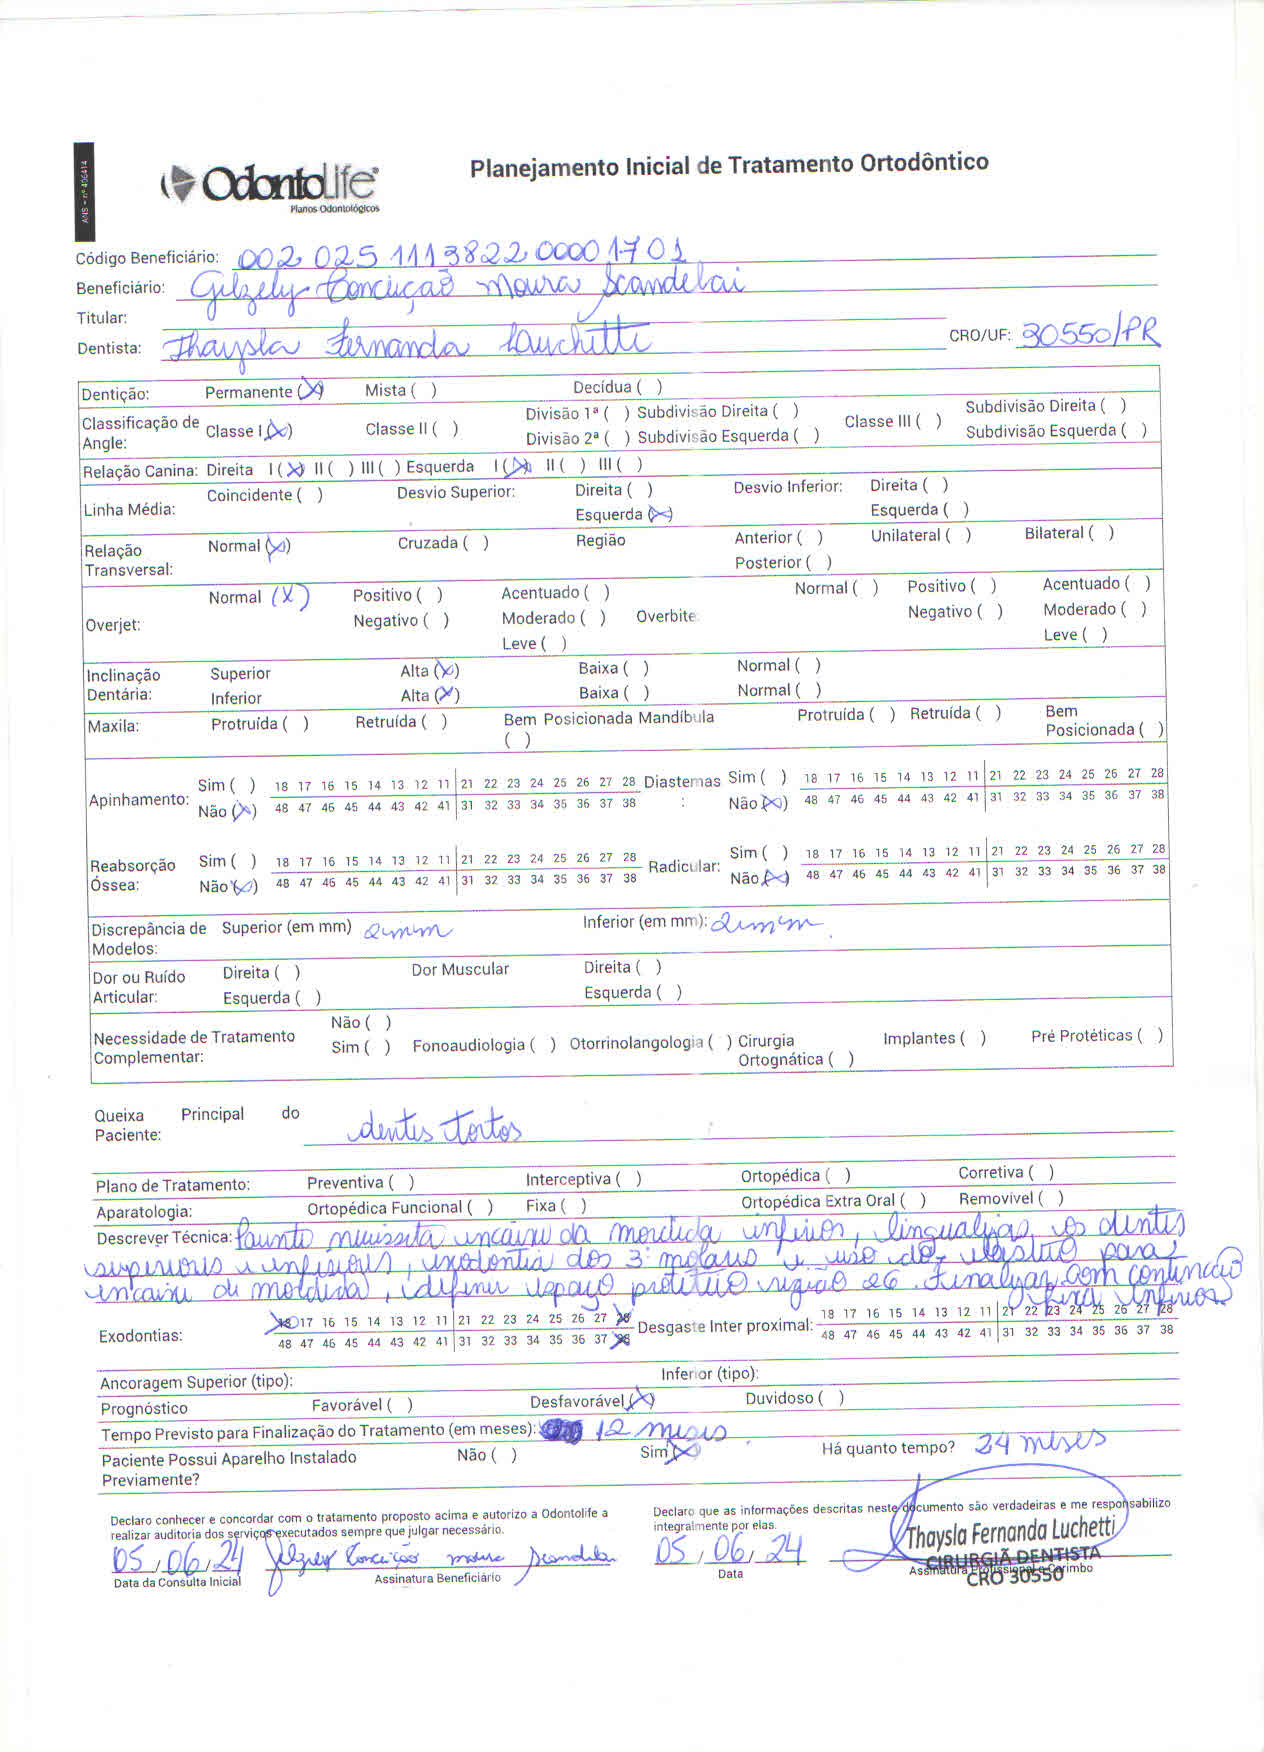 ANS - nº 406414
OdontoLife®
Planos Odontológicos
Planejamento Inicial de Tratamento Ortodôntico
Código Beneficiário: 002 025 1113822 0000 1701
Beneficiário: Gilzely Conceição Moura Scandelai
Titular:
Dentista: Thaysla Fernanda Luchetti CRO/UF: 30550/PR
Dentição: Permanente (X) Mista ( ) Decídua ( )
Classificação de Angle: Classe I (X) Classe II ( ) Divisão 1ª ( ) Subdivisão Direita ( ) Divisão 2ª ( ) Subdivisão Esquerda ( ) Classe III ( ) Subdivisão Direita ( ) Subdivisão Esquerda ( )
Relação Canina: Direita I (X) II ( ) III ( ) Esquerda I (X) II ( ) III ( )
Linha Média: Coincidente ( ) Desvio Superior: Direita ( ) Esquerda (X) Desvio Inferior: Direita ( ) Esquerda ( )
Relação Transversal: Normal (X) Cruzada ( ) Região Anterior ( ) Posterior ( ) Unilateral ( ) Bilateral ( )
Overjet: Normal (X) Positivo ( ) Negativo ( ) Acentuado ( ) Moderado ( ) Leve ( ) Overbite: Normal ( ) Positivo ( ) Negativo ( ) Acentuado ( ) Moderado ( ) Leve ( )
Inclinação Dentária: Superior Alta (X) Baixa ( ) Normal ( )
Inferior Alta (X) Baixa ( ) Normal ( )
Maxila: Protruída ( ) Retruída ( ) Bem Posicionada ( ) Mandíbula Protruída ( ) Retruída ( ) Bem Posicionada ( )
Apinhamento: Sim ( ) 18 17 16 15 14 13 12 11 21 22 23 24 25 26 27 28 Diastemas: Sim ( ) 18 17 16 15 14 13 12 11 21 22 23 24 25 26 27 28
Não (X) 48 47 46 45 44 43 42 41 31 32 33 34 35 36 37 38 Não (X) 48 47 46 45 44 43 42 41 31 32 33 34 35 36 37 38
Reabsorção Óssea: Sim ( ) 18 17 16 15 14 13 12 11 21 22 23 24 25 26 27 28 Radicular: Sim ( ) 18 17 16 15 14 13 12 11 21 22 23 24 25 26 27 28
Não (X) 48 47 46 45 44 43 42 41 31 32 33 34 35 36 37 38 Não (X) 48 47 46 45 44 43 42 41 31 32 33 34 35 36 37 38
Discrepância de Modelos: Superior (em mm) 2mm Inferior (em mm): 2mm
Dor ou Ruído Articular: Direita ( ) Esquerda ( ) Dor Muscular Direita ( ) Esquerda ( )
Necessidade de Tratamento Complementar: Não ( ) Sim ( ) Fonoaudiologia ( ) Otorrinolangologia ( ) Cirurgia Ortognática ( ) Implantes ( ) Pré Protéticas ( )
Queixa Principal do Paciente: dentes tortos
Plano de Tratamento: Preventiva ( ) Interceptiva ( ) Ortopédica ( ) Corretiva ( )
Aparatologia: Ortopédica Funcional ( ) Fixa ( ) Ortopédica Extra Oral ( ) Removivel ( )
Descrever Técnica: necessita encaixe da mordida inferior, os dentes
superiores e inferiores, exodontia dos 3º molares e uso de elástico para
encaixe de mordida, definir espaço protético região 26. Finalizar com contenção
fixa inferior
Exodontias: 18 17 16 15 14 13 12 11 21 22 23 24 25 26 27 28 Desgaste Inter proximal: 18 17 16 15 14 13 12 11 21 22 23 24 25 26 27 28
48 47 46 45 44 43 42 41 31 32 33 34 35 36 37 38 48 47 46 45 44 43 42 41 31 32 33 34 35 36 37 38
Ancoragem Superior (tipo): Inferior (tipo):
Prognóstico Favorável ( ) Desfavorável (X) Duvidoso ( )
Tempo Previsto para Finalização do Tratamento (em meses): 12 meses
Paciente Possui Aparelho Instalado Previamente? Não ( ) Sim (X) Há quanto tempo? 24 meses
Declaro conhecer e concordar com o tratamento proposto acima e autorizo a Odontolife a
realizar auditoria dos serviços executados sempre que julgar necessário.
05/06/24 Gilzely Conceição Moura Scandelai
Data da Consulta Inicial Assinatura Beneficiário
Declaro que as informações descritas neste documento são verdadeiras e me responsabilizo
integralmente por elas.
05/06/24
Data
Assinatura Profissional e Carimbo
Thaysla Fernanda Luchetti
CIRURGIÃ DENTISTA
CRO 30550